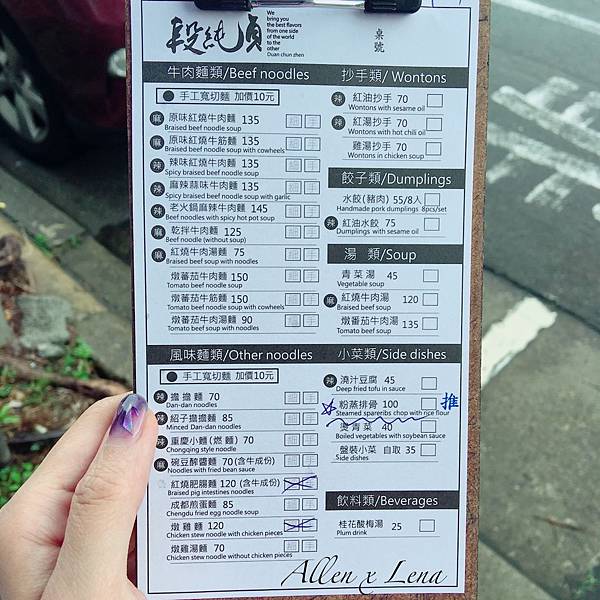 段純貞
We
bring you
the best flavors
from one side
of the world
to the
other
Duan chun zhen
桌號
牛肉麵類/Beef noodles
● 手工寬切麵 加價10元
麻 原味紅燒牛肉麵 135
Braised beef noodle soup
麻 原味紅燒牛筋麵 135
Braised beef noodle soup with cowheels
辣 辣味紅燒牛肉麵 135
Spicy braised beef noodle soup
辣 麻辣蒜味牛肉麵 135
Spicy braised beef noodle soup with garlic
辣 老火鍋麻辣牛肉麵 145
Beef noodles with spicy hot pot soup
麻 乾拌牛肉麵 125
Beef noodle (without soup)
麻 紅燒牛肉湯麵 75
Braised beef soup with noodles
燉蕃茄牛肉麵 150
Tomato beef noodle soup
燉蕃茄牛筋麵 150
Tomato beef noodle soup with cowheels
燉蕃茄牛肉湯麵 90
Tomato beef soup with noodles
風味麵類/Other noodles
● 手工寬切麵 加價10元
辣 擔擔麵 70
Dan-dan noodles
辣 紹子擔擔麵 85
Minced Dan-dan noodles
辣 重慶小麵(燃麵) 70
Chongqing style noodle
麻 碗豆醡醬麵 70 (含牛成份)
Noodles with fried bean sauce
紅燒肥腸麵 120 (含牛成份)
Braised pig intestines noodles
成都煎蛋麵 85
Chengdu fried egg noodle soup
燉雞麵 120
Chicken stew noodle with chicken pieces
燉雞湯麵 70
Chicken stew noodle without chicken pieces
抄手類/ Wontons
辣 紅油抄手 70
Wontons with sesame oil
辣 紅湯抄手 70
Wontons with hot chili oil
雞湯抄手 70
Wontons in chicken soup
餃子類/Dumplings
水餃(豬肉) 55/8入
Handmade pork dumplings 8pcs/set
辣 紅油水餃 75
Dumplings with sesame oil
湯 類/Soup
青菜湯 45
Vegetable soup
麻 紅燒牛肉湯 120
Braised beef soup
燉蕃茄牛肉湯 135
Tomato beef soup
小菜類/Side dishes
辣 澆汁豆腐 45
Deep fried tofu in sauce
粉蒸排骨 100 推
Steamed spareribs chop with rice flour
燙青菜 40
Boiled vegetables with soybean sauce
盤裝小菜 自取 35
Side dishes
飲料類/Beverages
桂花酸梅湯 25
Plum drink
Allen x Lena